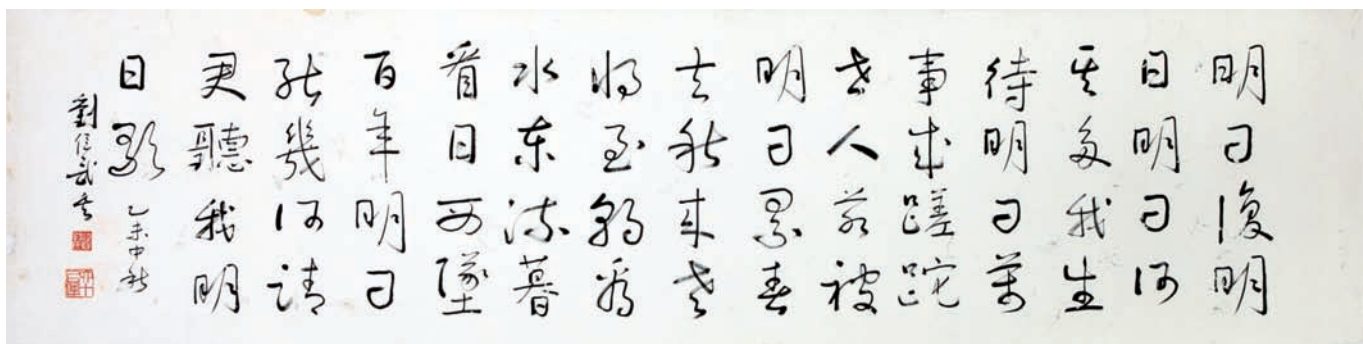 明日復明
日明日何
其多我生
待明日萬
事成蹉跎
世人若被
明日累春
去秋來老
將至朝看
水東流暮
看日西墜
百年明日
能幾何請
君聽我明
日歌 乙未中秋
劉武書